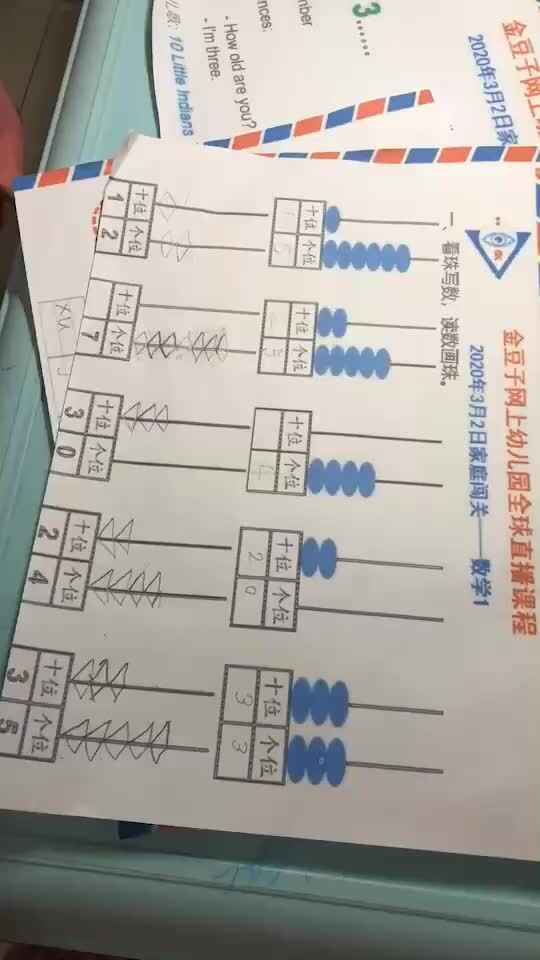 金豆子网上
2020年3月2日家
3......
- How old are you?
- I'm three.
儿歌: 10 Little Indians
金豆子网上幼儿园全球直播课程
2020年3月2日家庭闯关——数学1
一、看珠写数，读数画珠。
十位 个位 十位 个位 十位 个位 十位 个位 十位 个位
5 4 2 0 3 3
十位 个位 十位 个位 十位 个位 十位 个位 十位 个位
1 2 7 3 0 2 4 3 5